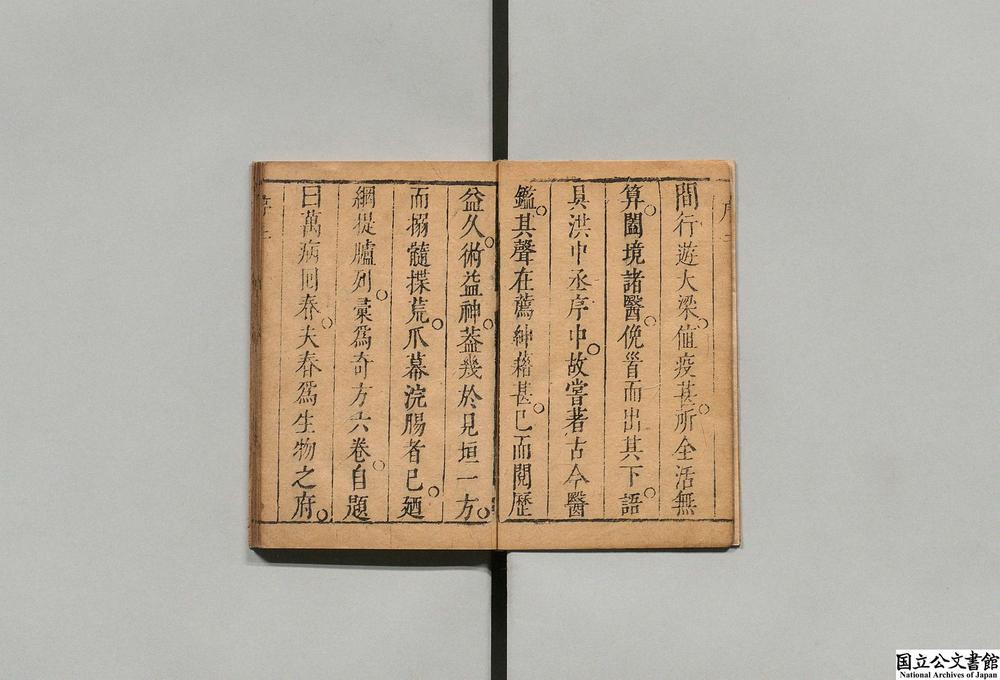 間行遊大梁値疫甚所全活無
算闔境諸醫俛首而出其下語
具洪中丞序中故嘗著古今醫
鑑其聲在薦紳藉甚已而閱歷
益久術益神葢幾於見垣一方
而搦髓揲荒爪幕浣腸者已廼
綱提臚列彙爲奇方六卷自題
曰萬病囘春夫春爲生物之府
国立公文書館
National Archives of Japan